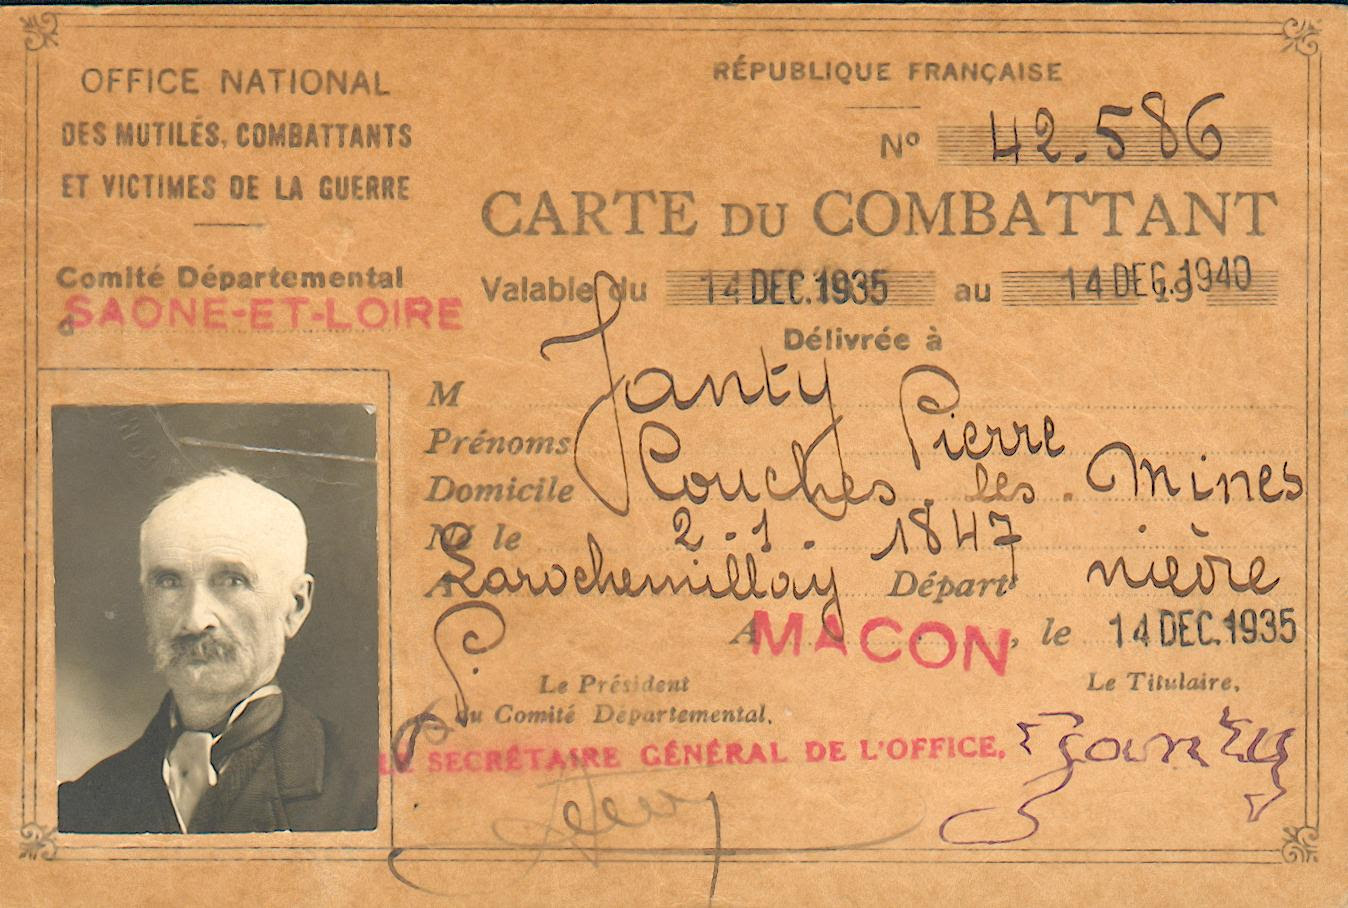 OFFICE NATIONAL
DES MUTILÉS, COMBATTANTS
ET VICTIMES DE LA GUERRE
Comité Départemental
d SAONE-ET-LOIRE
RÉPUBLIQUE FRANÇAISE
Nº 42.586
CARTE DU COMBATTANT
Valable du 14 DEC. 1935 au 14 DEC. 1940
Délivrée à
M Janty
Prénoms Pierre
Domicile Couches les Mines
Né le 2.1.1847
A Larochemillay Départt nièvre
A MACON, le 14 DEC. 1935
Le Président
du Comité Départemental,
P.
LE SECRÉTAIRE GÉNÉRAL DE L'OFFICE,
Le Titulaire,
Janty